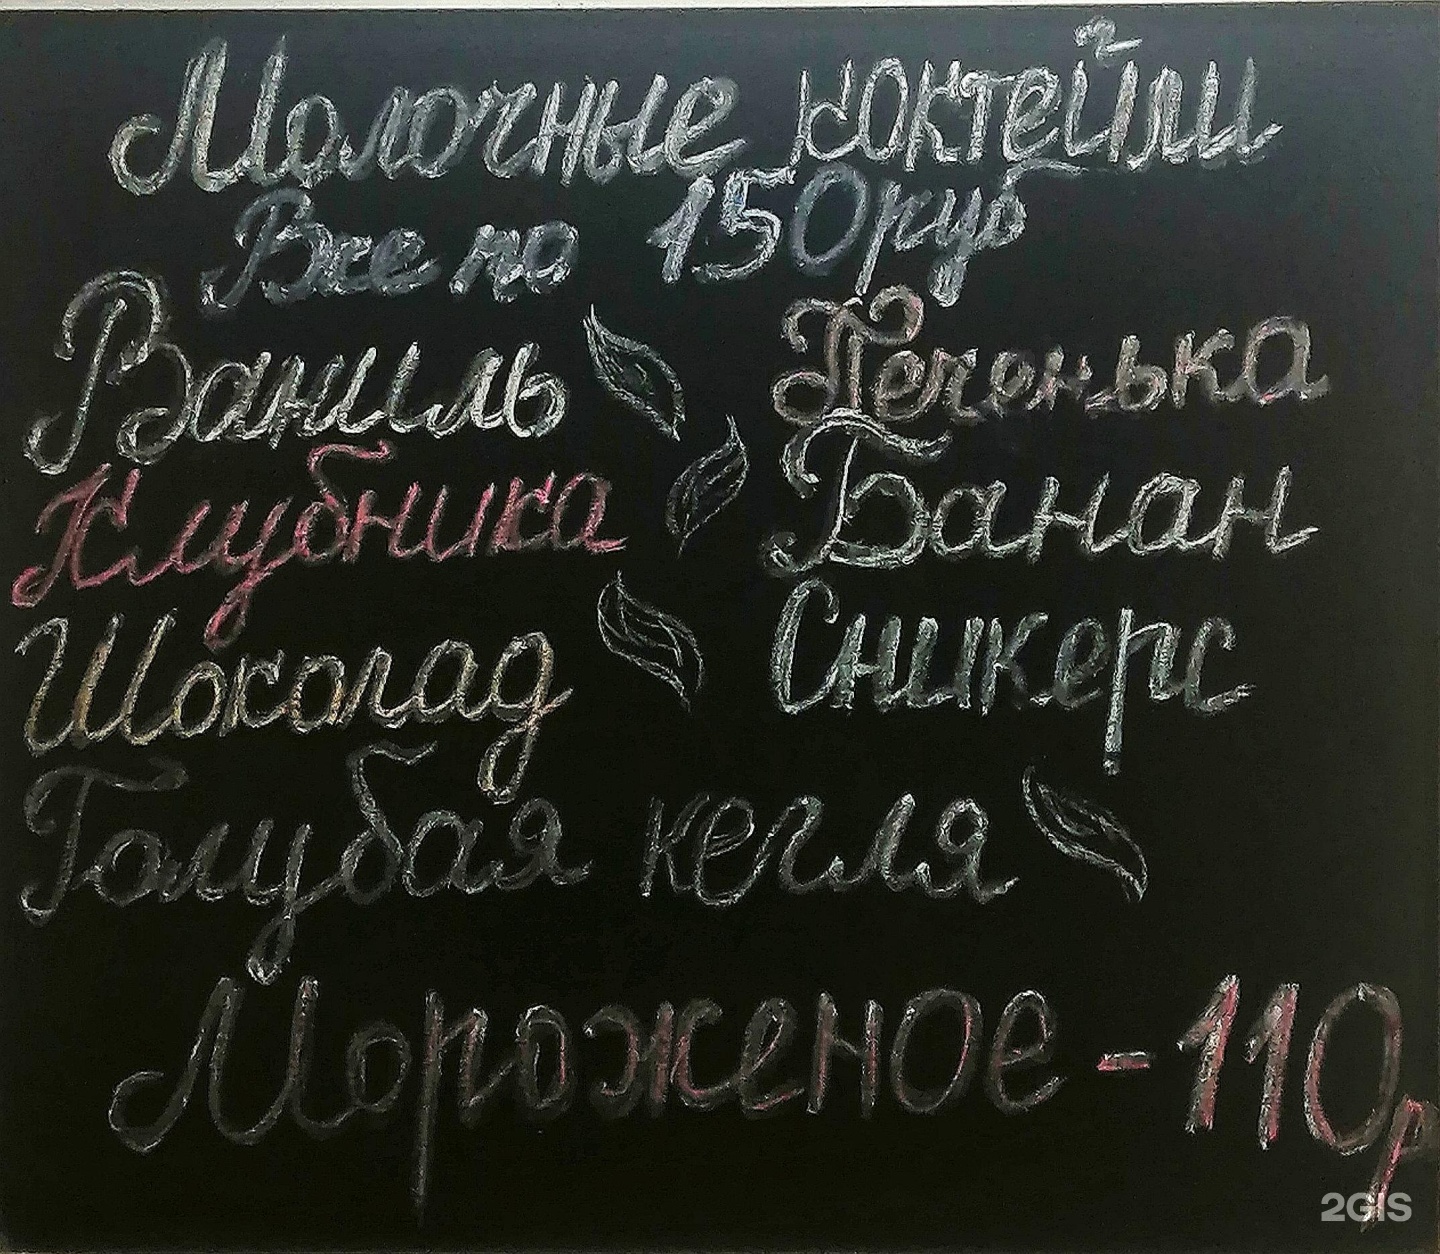 Молочные коктейли
Все по 150руб
Ваниль Печенька
Клубника Банан
Шоколад Сникерс
Голубая кегля
Мороженое - 110р
2GIS